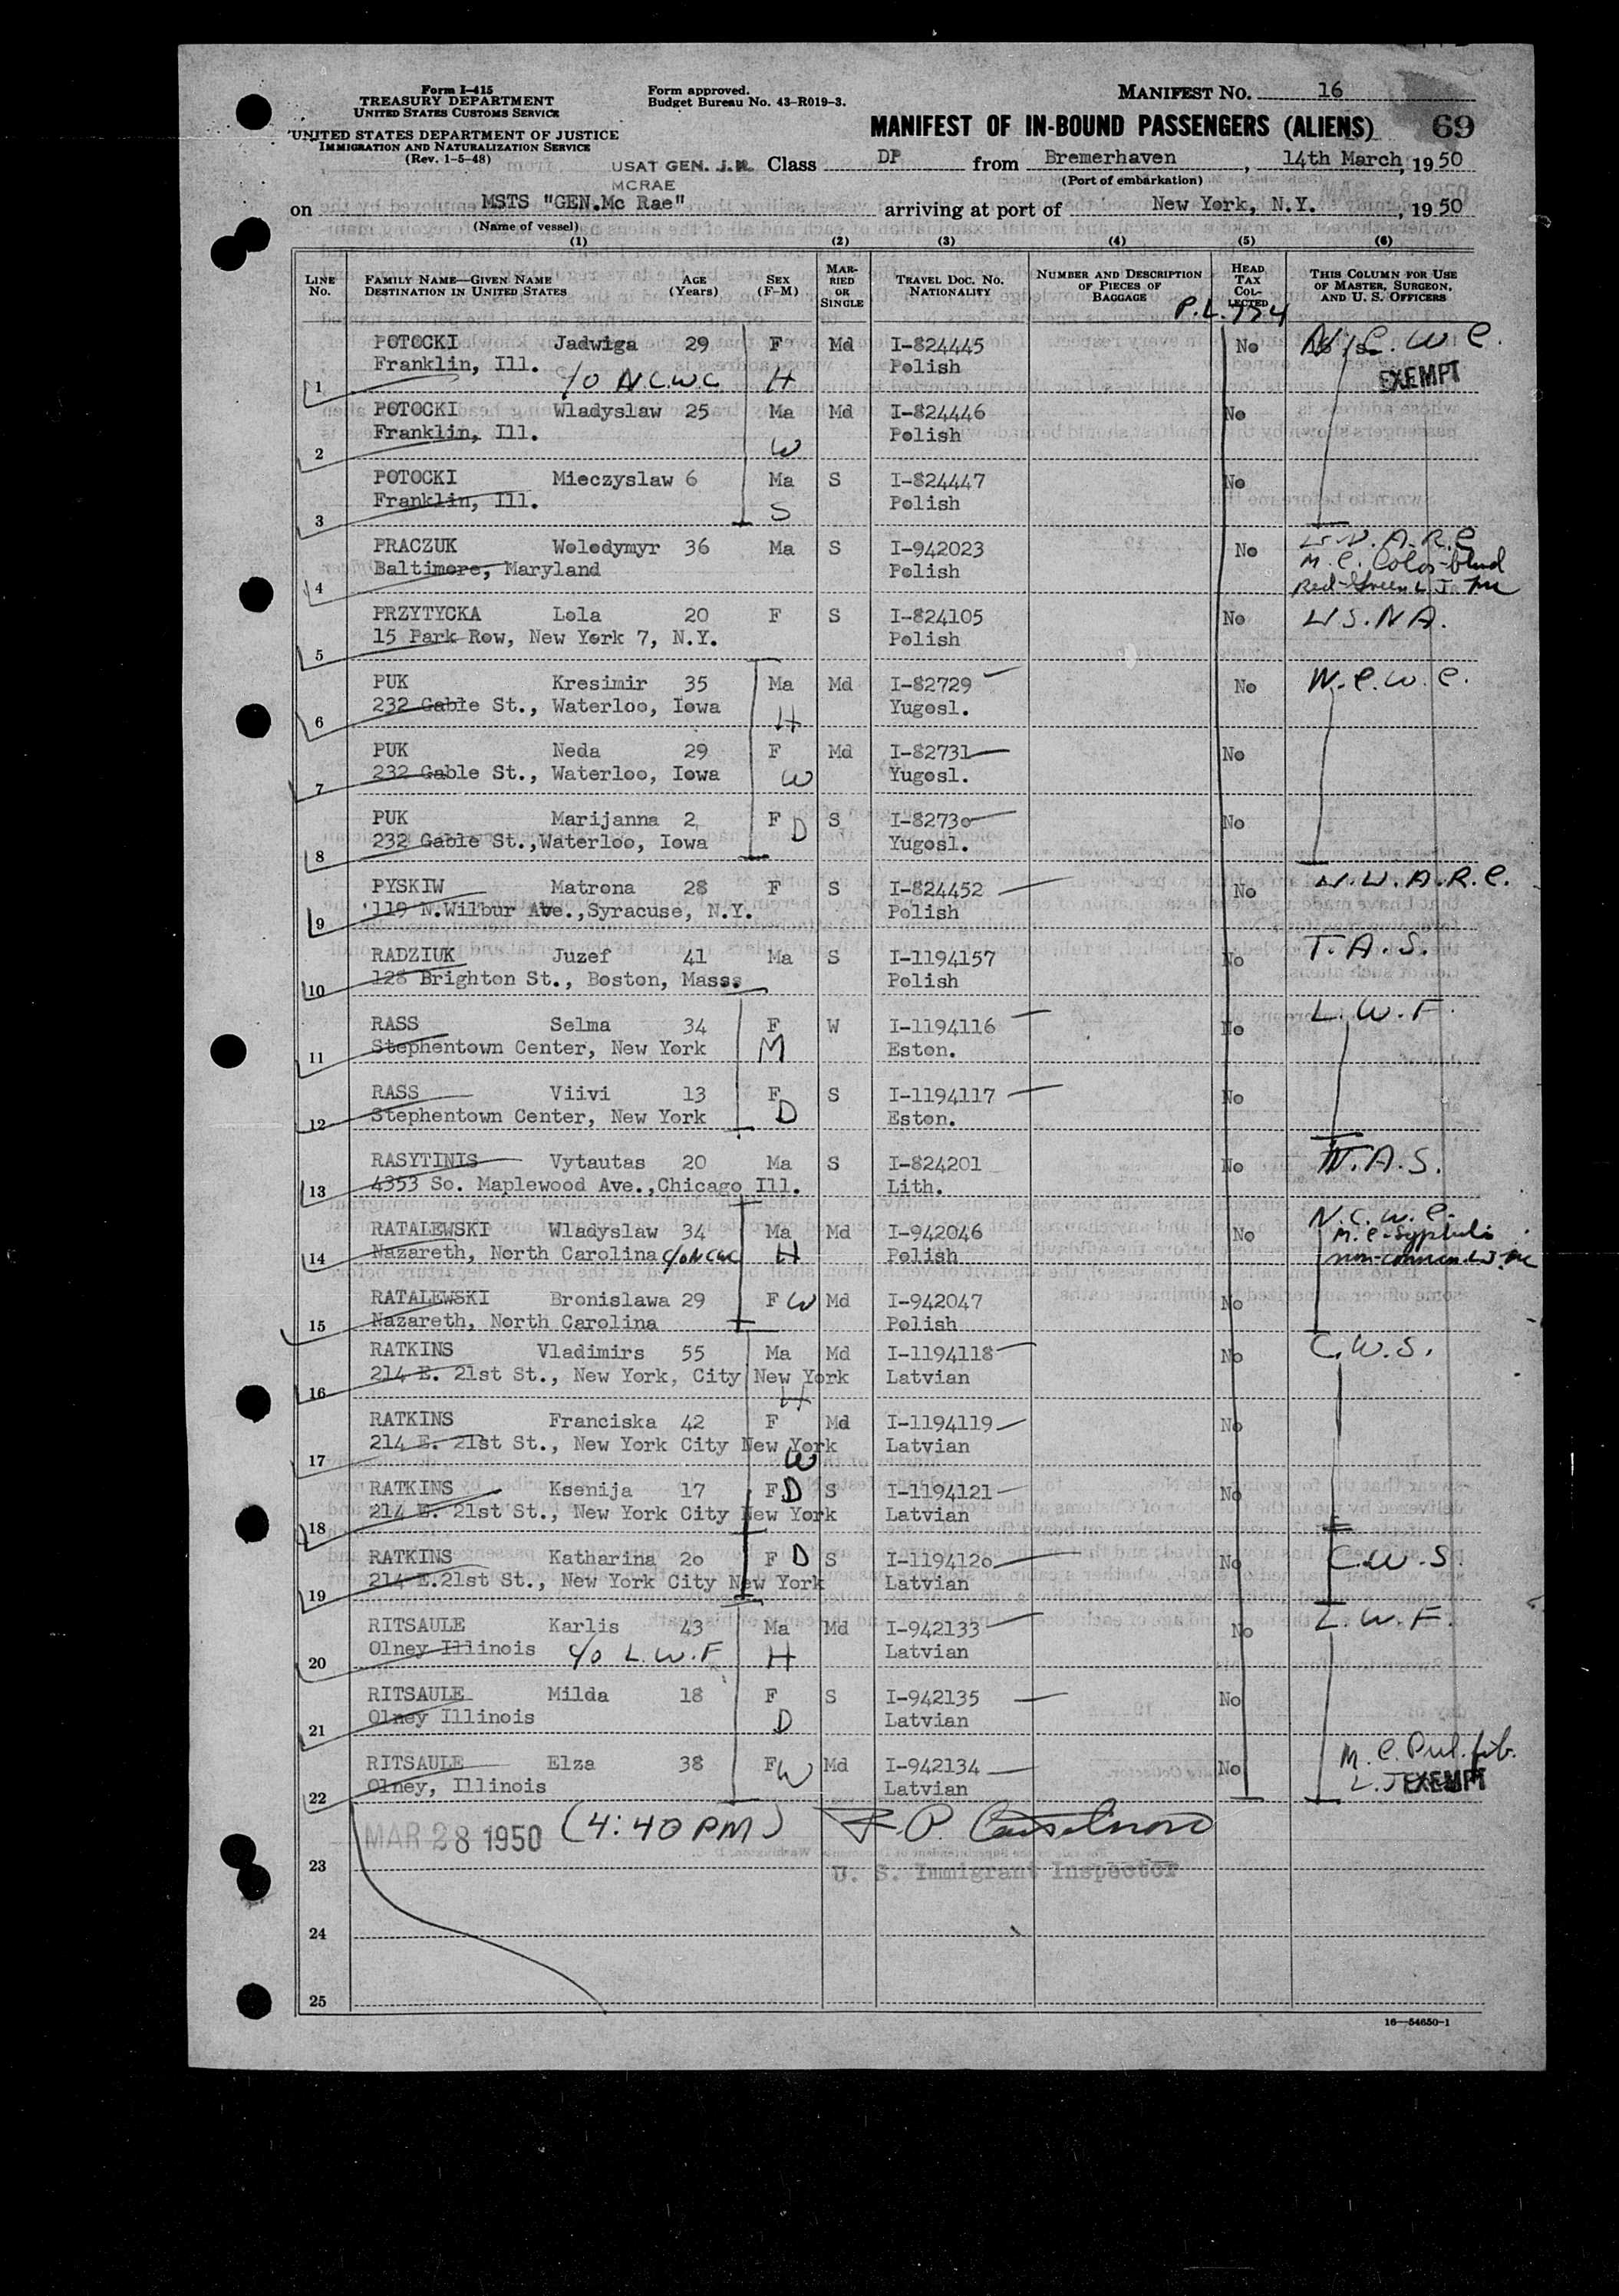 Form I-415
TREASURY DEPARTMENT
UNITED STATES CUSTOMS SERVICE
UNITED STATES DEPARTMENT OF JUSTICE
IMMIGRATION AND NATURALIZATION SERVICE
(Rev. 1-5-48)
Form approved.
Budget Bureau No. 43-R019-3.
MANIFEST NO. 16
MANIFEST OF IN-BOUND PASSENGERS (ALIENS) 69
USAT GEN. J.H. MCRAE Class DP from Bremerhaven, 14th March, 1950
(Port of embarkation)
on MSTS "GEN.Mc Rae" arriving at port of New York, N.Y., 1950
(Name of vessel)
(1) (2) (3) (4) (5) (6)
LINE No. FAMILY NAME—GIVEN NAME DESTINATION IN UNITED STATES AGE (Years) SEX (F-M) MARRIED OR SINGLE TRAVEL DOC. NO. NATIONALITY NUMBER AND DESCRIPTION OF PIECES OF BAGGAGE HEAD TAX COLLECTED THIS COLUMN FOR USE OF MASTER, SURGEON, AND U. S. OFFICERS
P.L. 774
POTOCKI Jadwiga 29 F Md I-824445 No N.C.W.C.
1 Franklin, Ill. c/o N.C.W.C H Polish EXEMPT
POTOCKI Wladyslaw 25 Ma Md I-824446 No
2 Franklin, Ill. W Polish
POTOCKI Mieczyslaw 6 Ma S I-824447 No
3 Franklin, Ill. S Polish
PRACZUK Wolodymyr 36 Ma S I-942023 No U.U.A.R.C
4 Baltimore, Maryland Polish M.C. Color-blind
Red-Green
PRZYTYCKA Lola 20 F S I-824105 No U.S.N.A.
5 15 Park Row, New York 7, N.Y. Polish
PUK Kresimir 35 Ma Md I-82729 No N.C.W.C.
6 232 Gable St., Waterloo, Iowa H Yugosl.
PUK Neda 29 F Md I-82731 No
7 232 Gable St., Waterloo, Iowa W Yugosl.
PUK Marijanna 2 F D S I-82730 No
8 232 Gable St.,Waterloo, Iowa Yugosl.
PYSKIW Matrona 28 F S I-824452 No U.U.A.R.C.
9 119 N.Wilbur Ave.,Syracuse, N.Y. Polish
RADZIUK Juzef 41 Ma S I-1194157 No T.A.S.
10 128 Brighton St., Boston, Mass. Polish
RASS Selma 34 F W I-1194116 No L.W.F.
11 Stephentown Center, New York M Eston.
RASS Viivi 13 F S I-1194117 No
12 Stephentown Center, New York D Eston.
RASYTINIS Vytautas 20 Ma S I-824201 No T.A.S.
13 4353 So. Maplewood Ave.,Chicago Ill. Lith.
RATALEWSKI Wladyslaw 34 Ma Md I-942046 No N.C.W.C.
14 Nazareth, North Carolina c/o NCWC H Polish M.C-Syphilis
RATALEWSKI Bronislawa 29 F W Md I-942047 No
15 Nazareth, North Carolina Polish
RATKINS Vladimirs 55 Ma Md I-1194118 No C.W.S.
16 214 E. 21st St., New York, City New York H Latvian
RATKINS Franciska 42 F Md I-1194119 No
17 214 E. 21st St., New York City New York W Latvian
RATKINS Ksenija 17 F D S I-1194121 No
18 214 E. 21st St., New York City New York Latvian
RATKINS Katharina 20 F D S I-1194120 No C.W.S.
19 214 E.21st St., New York City New York Latvian
RITSAULE Karlis 43 Ma Md I-942133 No L.W.F.
20 Olney Illinois c/o L.W.F H Latvian
RITSAULE Milda 18 F S I-942135 No
21 Olney Illinois D Latvian
RITSAULE Elza 38 F W Md I-942134 No M.C. Pul. fib.
22 Olney, Illinois Latvian EXEMPT
MAR 28 1950 (4:40 PM)
23 U. S. Immigrant Inspector
24
25
16—54650-1